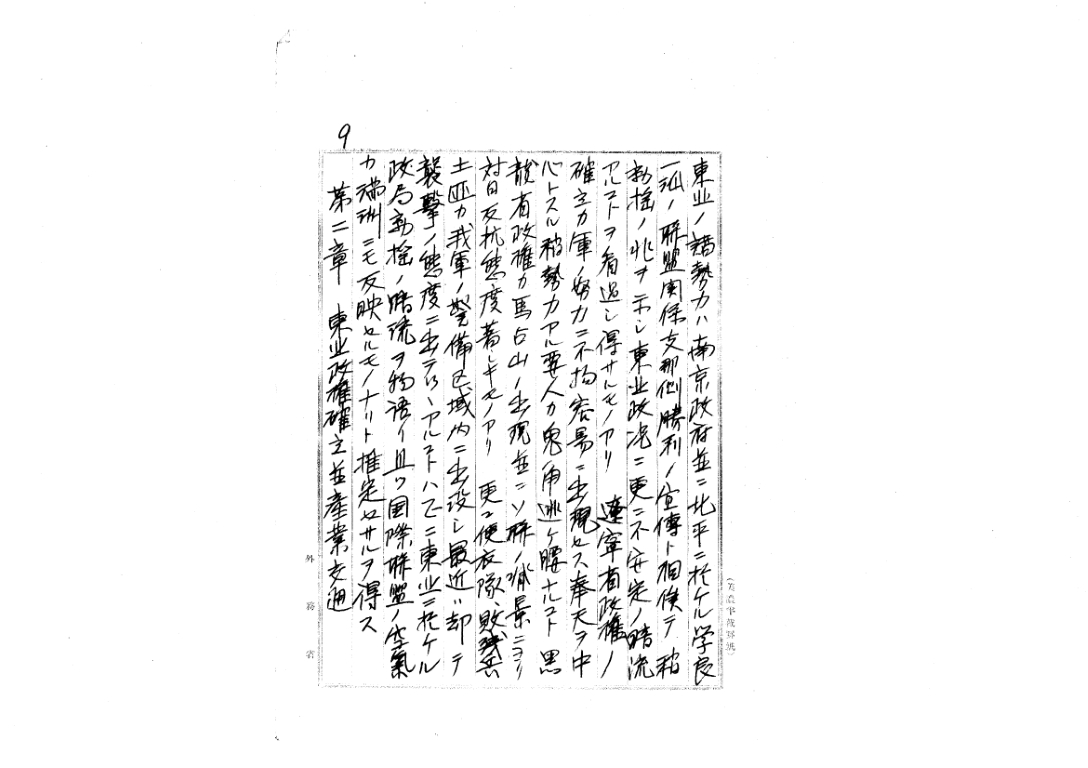 9
東北ノ諸勢力ハ南京政府並ニ北平ニ於ケル学良
一派ノ聯盟関係支那側勝利ノ宣傳ト相俟テ稍
動揺ノ兆ヲ示シ東北政况ニ更ニ不安定ノ暗流
アルコトヲ看過シ得サルモノアリ 遼寧省政権ノ
確立カ軍ノ努力ニ不拘容易ニ出現セス奉天ヲ中
心トスル稍勢力アル要人カ兎角逃ケ腰ナルコト 黒
龍省政権カ馬占山ノ出現並ニソ聯ノ背景ニヨリ
対日反抗態度著シキモノアリ 更ニ便衣隊、敗残兵
土匪カ我軍ノ警備区域内ニ出没シ最近ハ却テ
襲撃ノ態度ニ出テツヽアルコトハ正ニ東北ニ於ケル
政局動揺ノ暗流ヲ物語リ且ツ国際聯盟ノ空氣
カ満洲ニモ反映セルモノナリト推定セサルヲ得ス
第二章 東北政権確立並産業交通
外務省